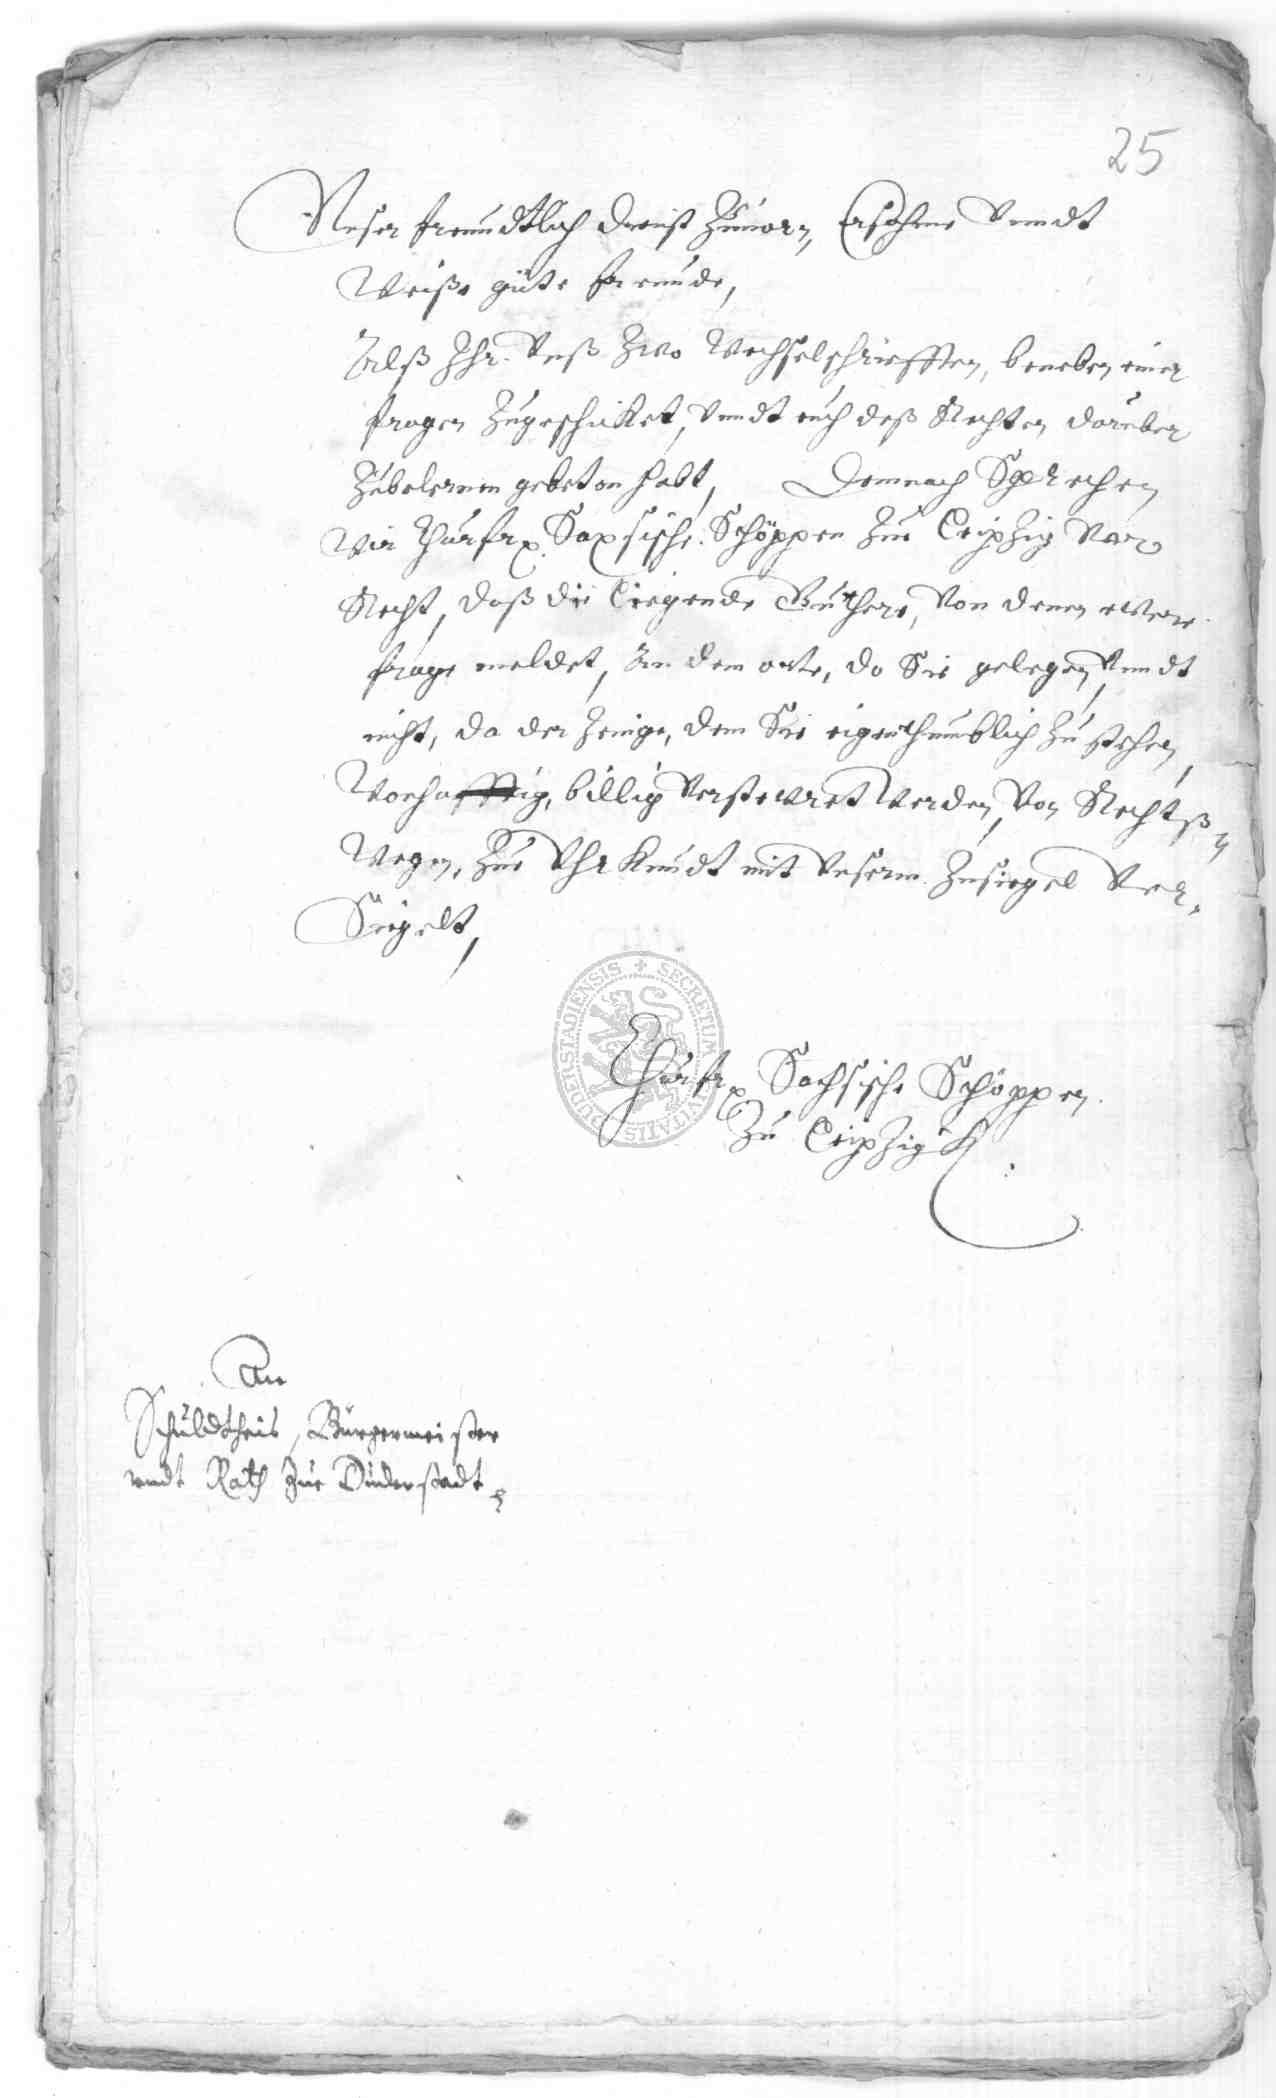 25
Unser freundtlich dienst zuuorn, Ersahme vnndt
Weiße gute freunde,
Alß Ihr Vnß zwo Wechselschriefften, beneben einer
fragen zugeschicket, vnndt euch deß Rechten daruber
zubelernen gebeten habt, Demnach Sprechen
Wir Churfr. Saxsische Schöppen zue Leipzig vor
Recht, daß die liegende Guthere, von denen ewere
frage meldet, An dem orte, do Sie gelegen, vnndt
nicht, da der Jenige, dem Sie eigenthumblich zu stehen,
Wonhafftig, billig versteuret werden, Von Rechtß
Wegen, Zue Vhrkundt mit Vnserm Insiegel Ver-
Siegelt,
SECRETUM CIVITATIS DUDERSTADIENSIS
Churfr. Sachsische Schöppen
zu Leipzigk
An
Schuldtheis, Bürgermeister
vndt Rath zue Duderstadt